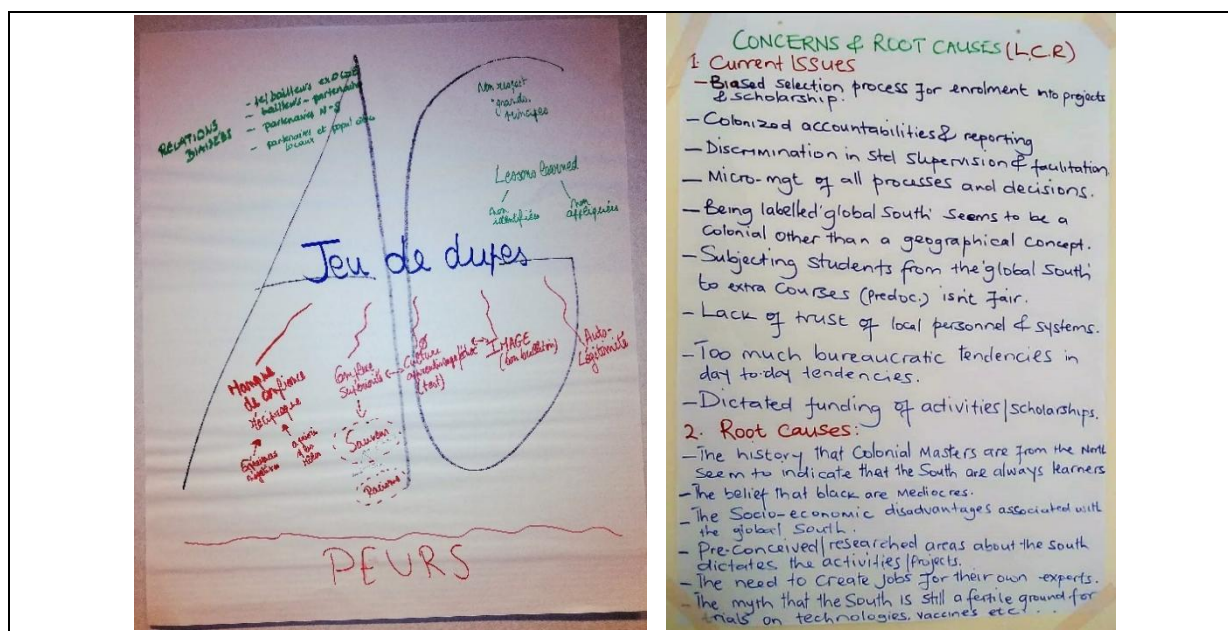 RELATIONS
BIAISEES
- partenaires N-S
- partenaires et
locaux
Non respect
grands
principes
Lessons learned
non
identifiées
non
appliquées
Jeu de dupes
Manque
de confiance
réciproque
négatives
a priori
Complexe
Supériorité
Sauveur
Racisme
Culture
apprentissage/
(tout)
IMAGE
Auto-
Légitimité
PEURS
CONCERNS & ROOT CAUSES (L.C.R)
1. Current Issues
- Biased selection process for enrolment into projects
& scholarship.
- Colonized accountabilities & reporting
- Discrimination in std supervision & facilitation
- Micro-mgt of all processes and decisions.
- Being labelled 'global South' seems to be a
colonial other than a geographical concept.
- Subjecting students from the 'global South'
to extra courses (Predoc.) isn't fair.
- Lack of trust of local personnel & systems.
- Too much bureaucratic tendencies in
day to-day tendencies.
- Dictated funding of activities/scholarships.
2. Root Causes:
- The history that Colonial Masters are from the North
seem to indicate that the South are always learners
- The belief that black are mediocres.
- The Socio-economic disadvantages associated with
the global South.
- Pre-conceived/researched areas about the south
dictates the activities/projects.
- The need to create jobs for their own experts.
- The myth that the South is still a fertile ground for
trials on technologies, vaccines etc...